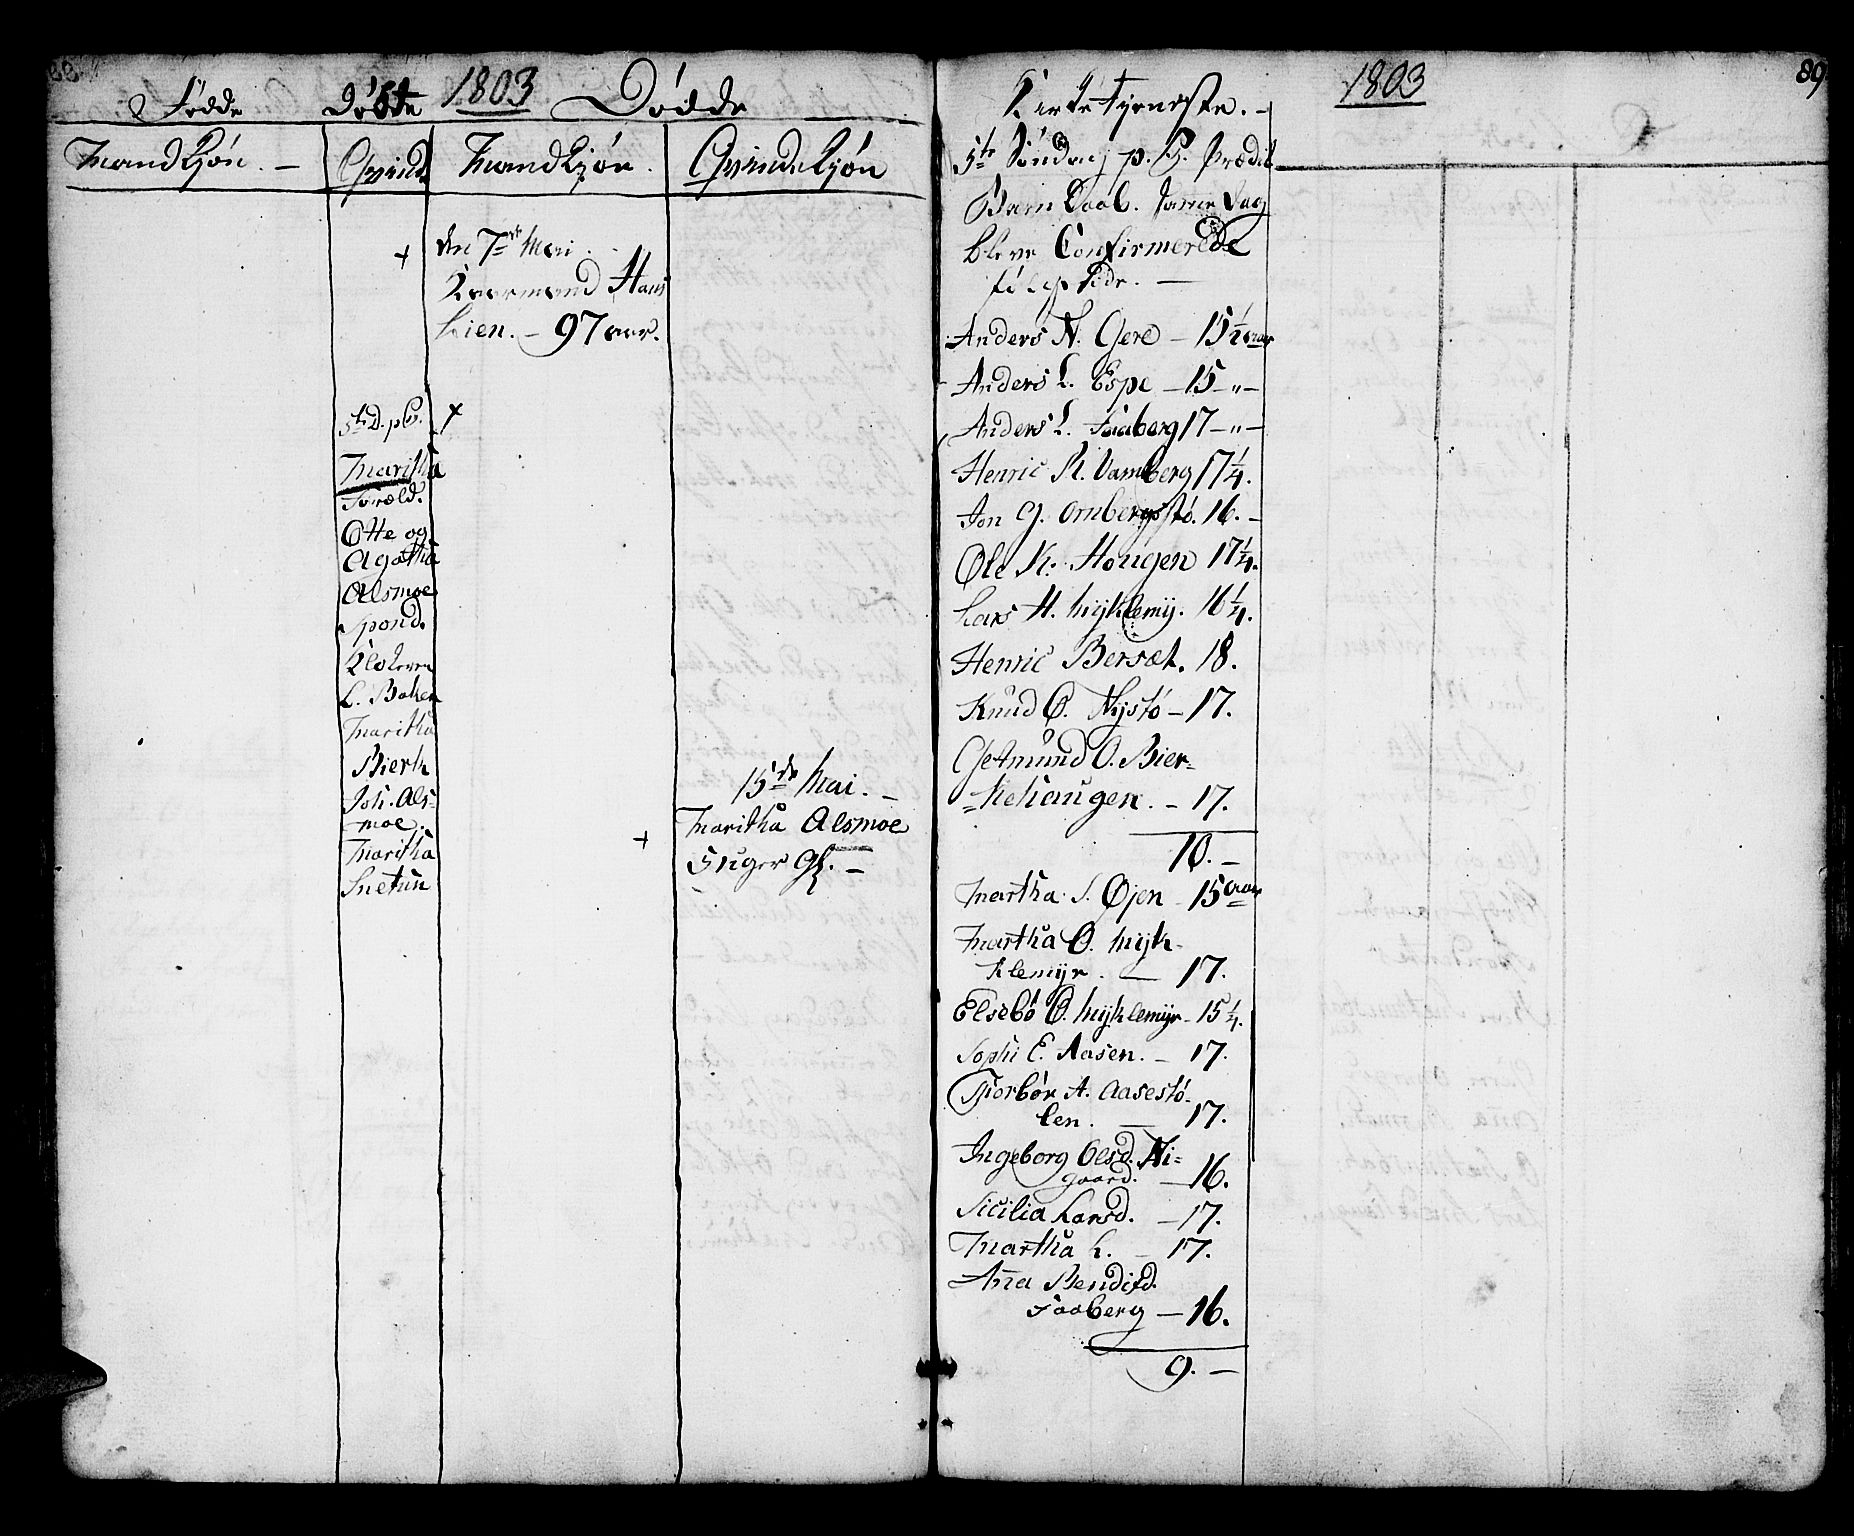 88
Födde Döbte 1803 Dödde
Mandkjön. — Qvind. Mandkjön. Qvindekjön
+ den 7de Mai.
Kaarmand Hans
Lien. — 97 aar.
5te S. p. P. +
Maritha
Foræld.
Otte og
Agatha
Alsmoe
Spond.
Klokeren
L. Baken
Maritha
Bierk
Joh. Als-
moe.
Maritha
Snetun
15de Mai. —
+ Maritha Alsmoe
Inger gl. —
1803
89.
Kirketjeneste. —
5te Söndag p. P. Prædik
Barn Daab. samme Dag
bleve Confirmerede
fölgende. —
Anders N. Gere — 15 1/2 aar
Anders L. Espe — 15 — „ —
Anders L. Faaberg 17 — „ —
Henric R. Vamberg 17 1/4.
Jon G. Ornbergstö. 16. —
Ole K. Hougen 17 1/4.
Lars H. Myklemÿ. 16 1/4.
Henric Bersæt. 18.
Knud O. Nystö — 17.
Getmund O. Bier-
=kehaugen. — 17.
10. —
Martha S. Øjen — 15 aar
Martha O. Mÿk-
klemÿr. — 17.
Elsebö O. Mÿklemÿr — 15 1/4.
Sophi E. Aasen. — 17.
Torbör A. Aasestö-
len. — 17.
Ingeborg Olsd. Ni-
gaard. — 16.
Sicilia Larsd. — 17.
Martha L. — 17.
Anna Bendixd.
Faaberg — 16.
9. —